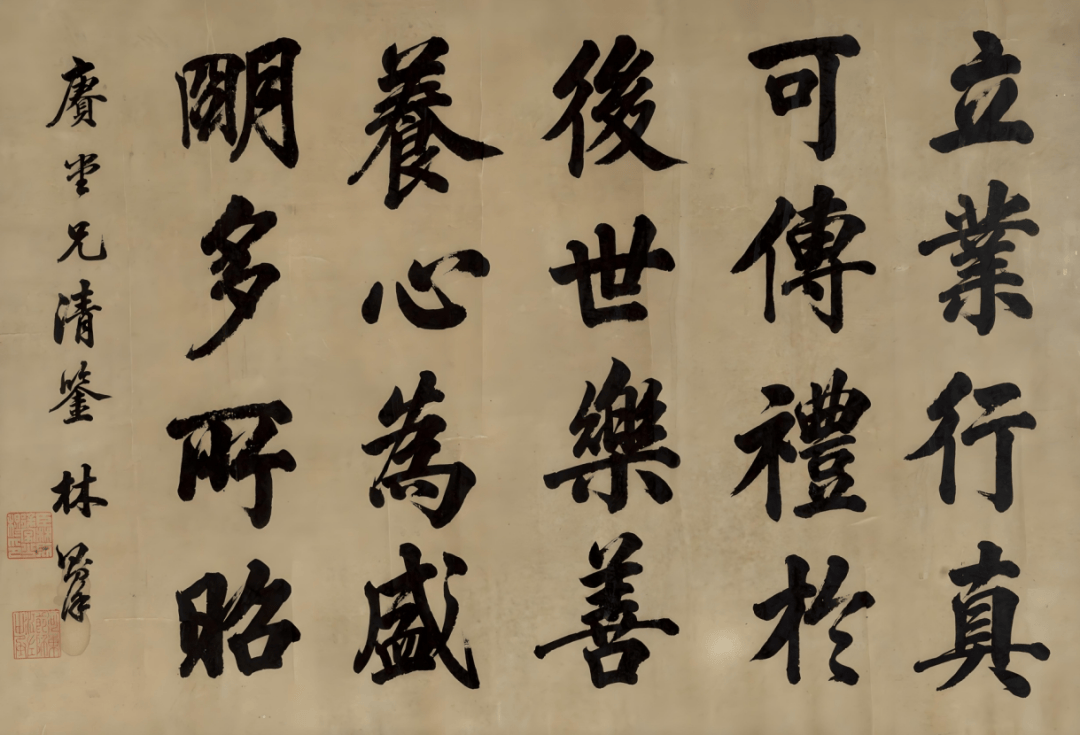 立業行真
可傳禮於
後世樂善
養心為盛
明多所昭
賡堂兄清鑒 林則徐